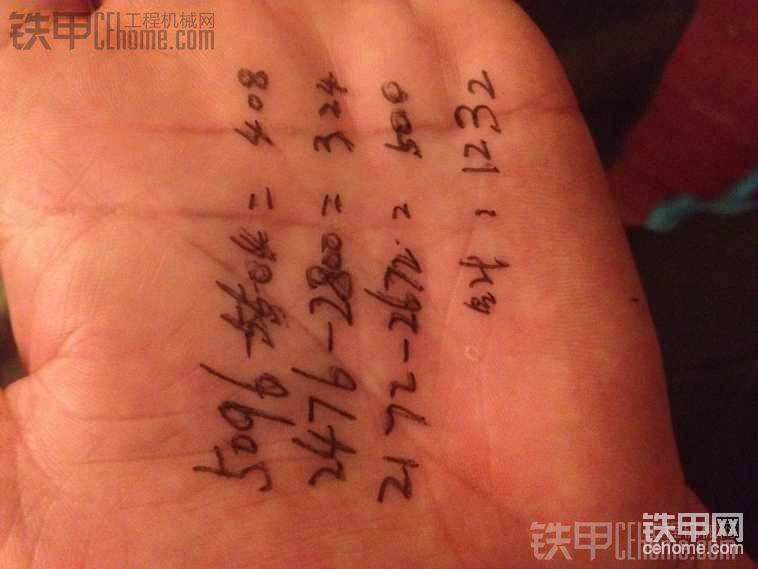 铁甲 工程机械网
CEhome.com
5096-5504=408
2476-2800=324
2172-2672=500
: 1232
铁甲CEhome.com
铁甲网
cehome.com